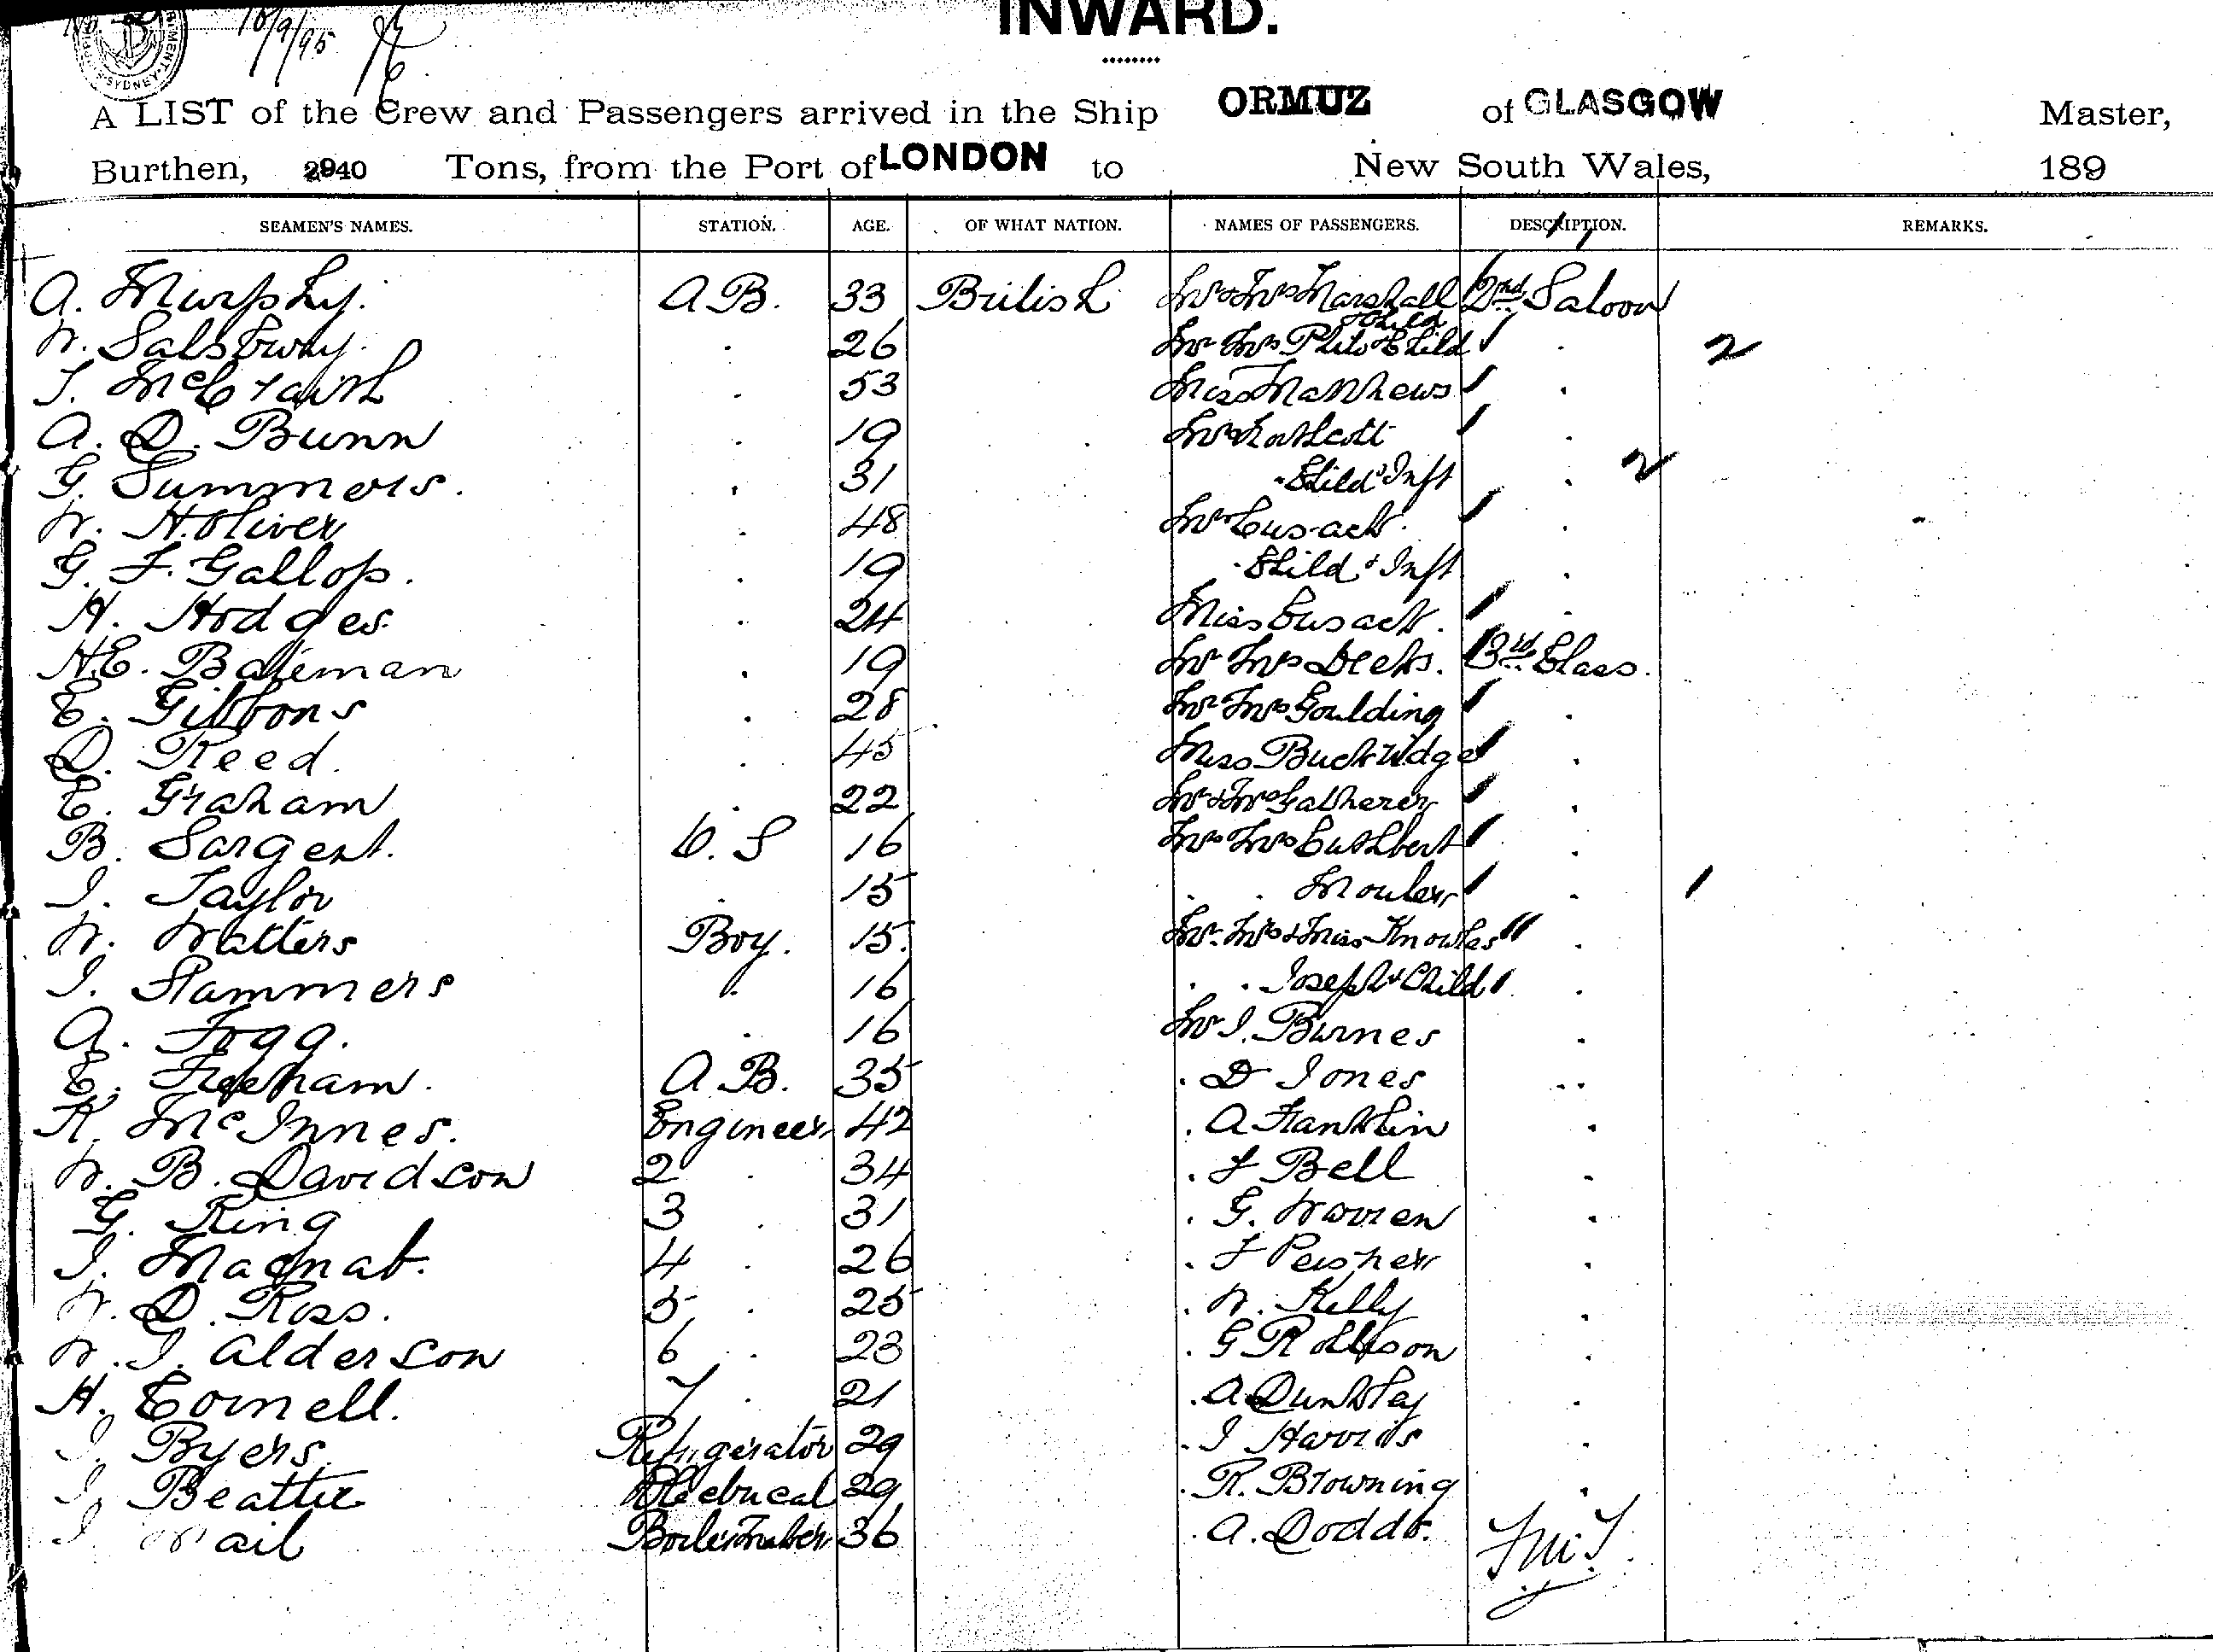 10/9/95
SYDNEY
INWARD.
A LIST of the Crew and Passengers arrived in the Ship ORMUZ of GLASGOW Master,
Burthen, 2940 Tons, from the Port of LONDON to New South Wales, 189
SEAMEN'S NAMES. STATION. AGE. OF WHAT NATION. NAMES OF PASSENGERS. DESCRIPTION. REMARKS.
A. Murphy. A.B. 33 British Mr & Mrs Marshall & Child 2nd Saloon
W. Salsbury . 26 Mr Mrs & Child . 2
J. . 53 Miss Matthews .
A. D. Bunn . 19 Mrs .
G. Summers. . 31 . Child & Inft . 2
W. H. Oliver . 48 Mrs Cusack .
G. F. Gallop. . 19 . Child & Inft .
H. Hodges . 24 Miss Cusack. .
H.E. Bateman . 19 Mr Mrs Deeks. 3rd Class.
E. Gibbons . 28 Mr Mrs Goulding .
D. Reed. . 45 Miss Buckridge .
E. Graham . 22 Mr & Mrs Gatherer .
B. Sargent. O.S 16 Mr Mrs Cuthbert .
J. Taylor . 15 . . .
W. Watters Boy. 15. Mr. Mrs & Miss Knowles .
J. Stammers . 16 . . Joseph & Child .
A. Fogg. . 16 Mr J. Burnes .
E. A.B. 35 . D Jones . .
K. McInnes. Engineer 42 . A Franklin .
W. B. Davidson 2 . 34 . F Bell .
G. King 3 . 31 . G. Warren .
J. 4 . 26 . F .
W. D. Ross. 5 . 25 . W. Kelly .
W. J. Alderson 6 . 23 . G .
H. Cornell. 7 . 21 . A Dunkley .
J. Byers. Refrigerator 29 . J Harris .
J. Beattie 29 . R. Browning .
J 36 . A. Dodds.